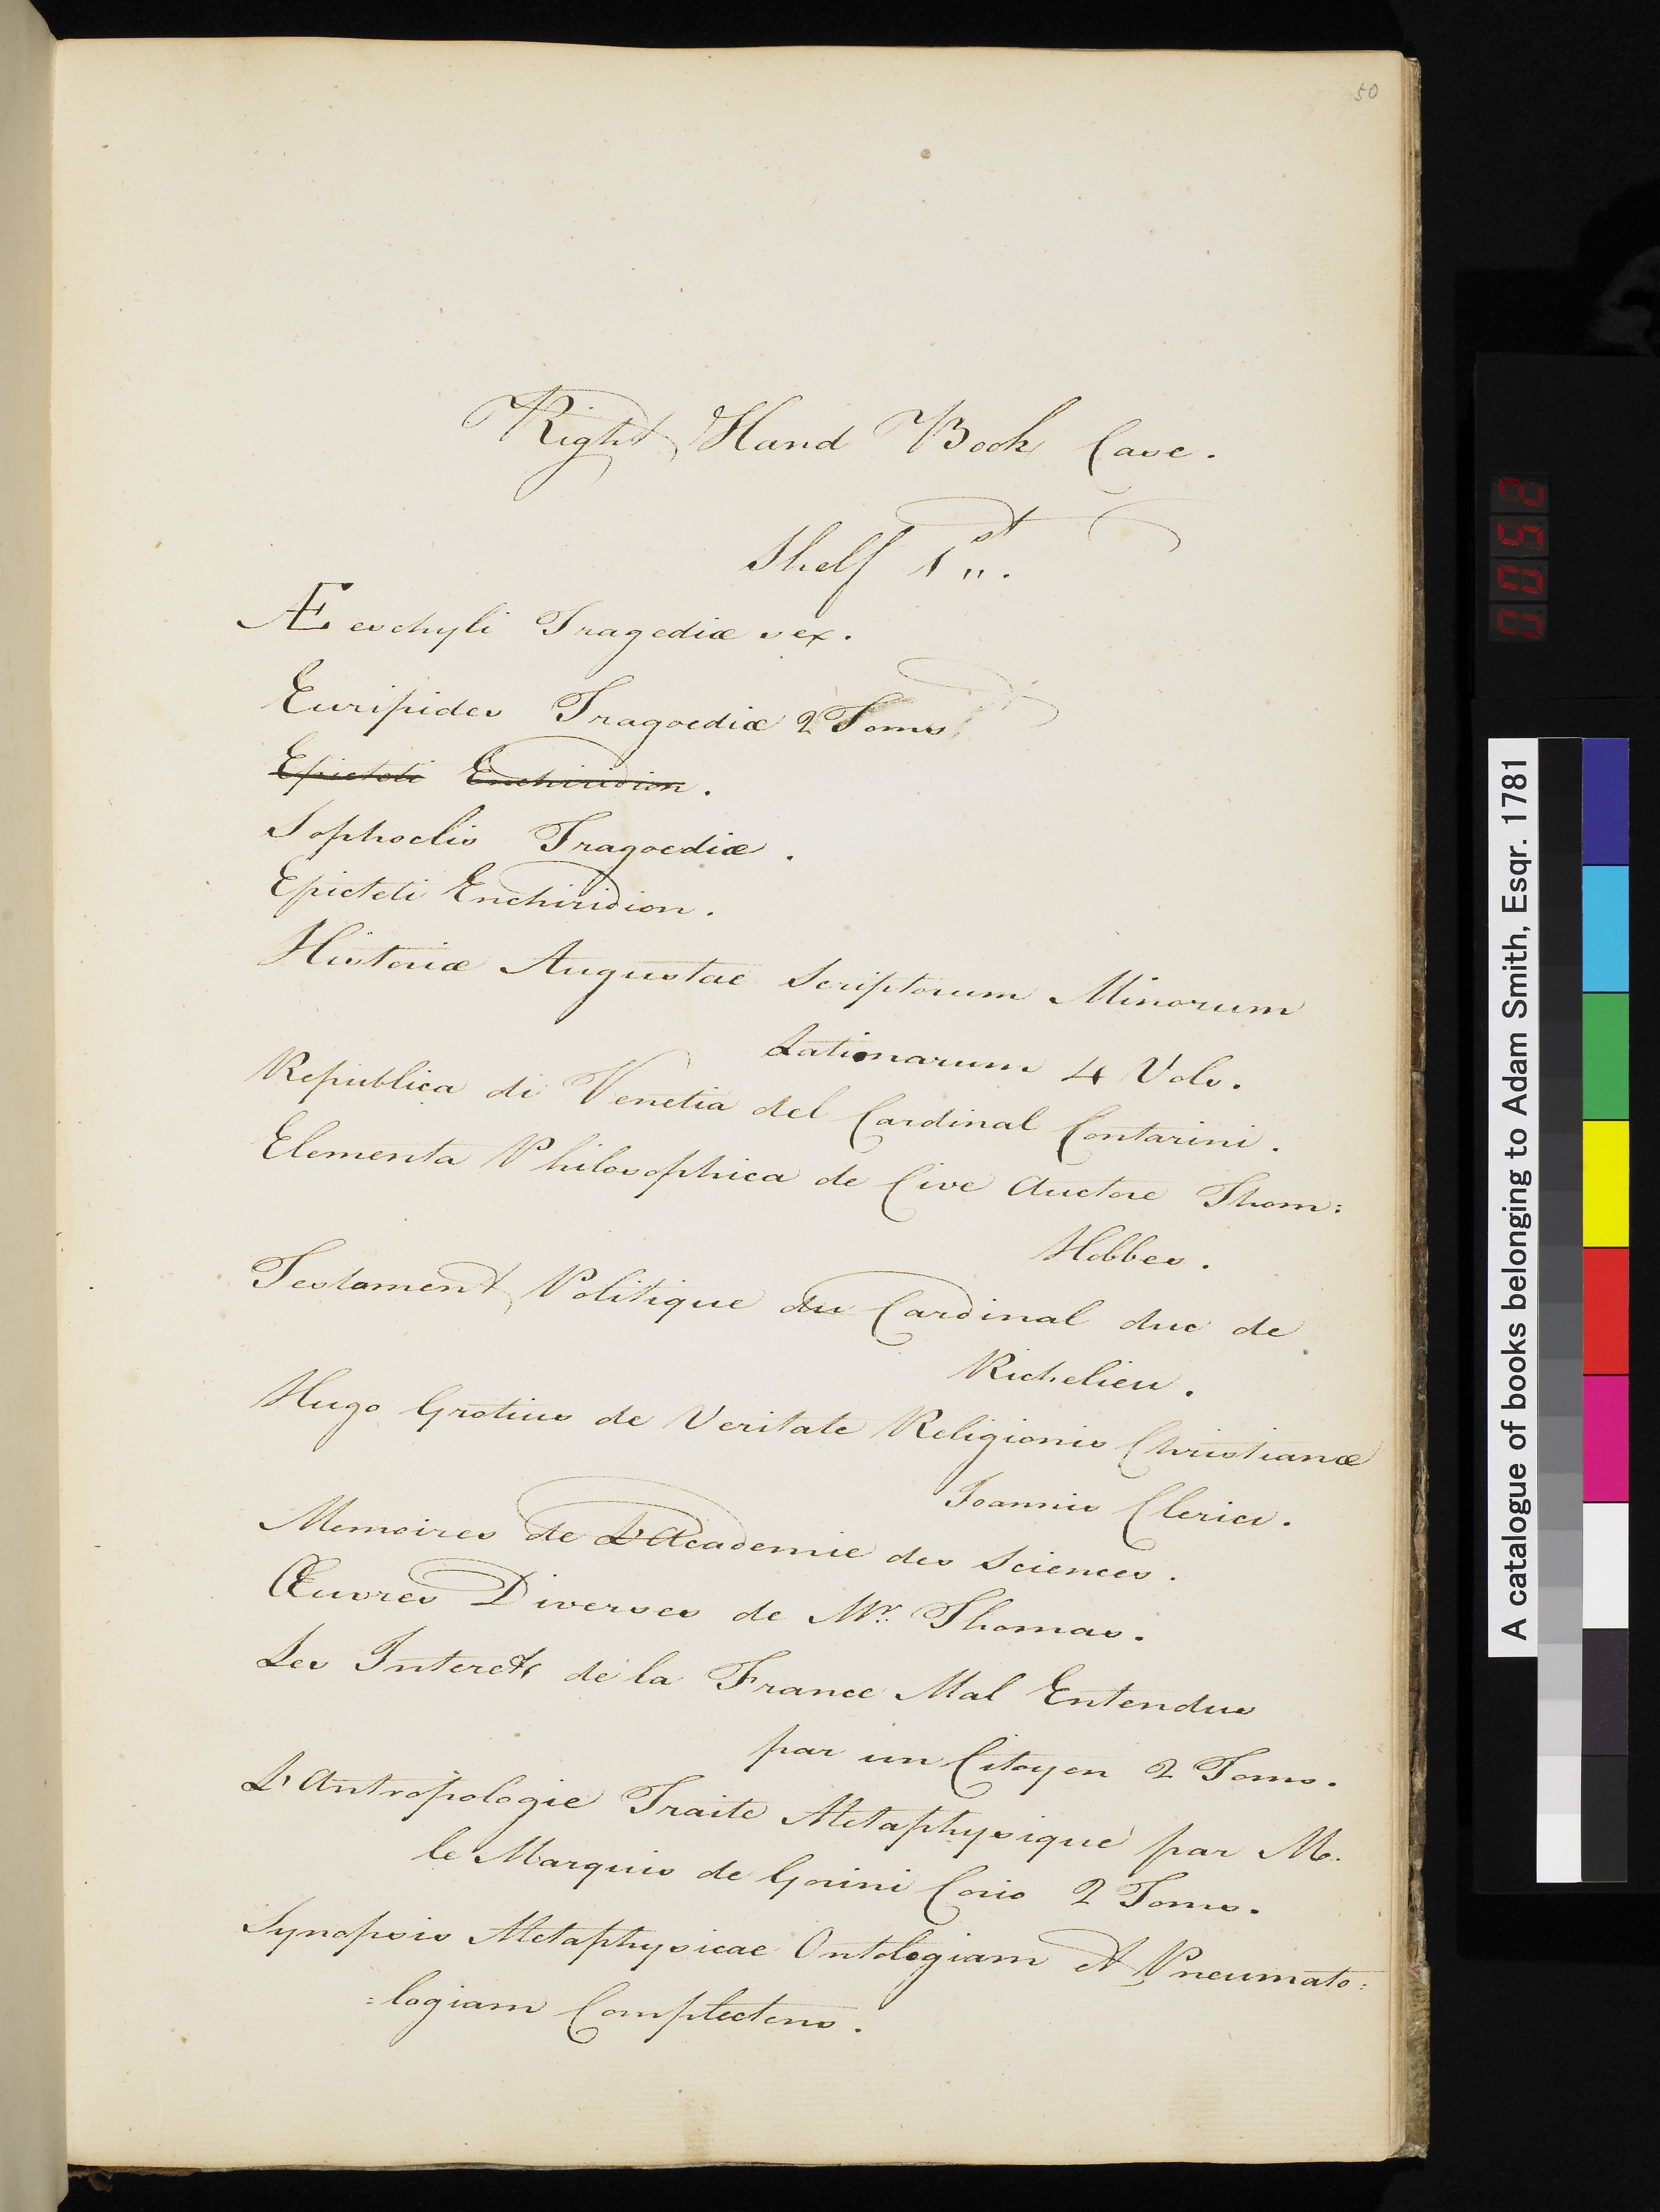 50
Right Hand Book Case.
Shelf 1st.
Æeschyli Tragediæ sex.
Euripides Tragoediæ 2 Toms
Epicteti Enchiridion.
Sophoclis Tragoediæ.
Epicteti Enchiridion.
Historiæ Augustae Scriptorum Minorum
Latinarum 4 Vols.
Republica di Venetia del Cardinal Contarini.
Elementa Philosophica de Cive Auctore Thom:
Hobbes.
Testament Politique du Cardinal duc de
Richelieu.
Hugo Grotius de Veritate Religionis Christianæ
Joannis Clerici.
Memoires de L'Academie des Sciences.
Œuvres Diverses de Mr. Thomas.
Les Interets de la France Mal Entendus
par un Citoyen 2 Toms.
L'Antropologie Traite Metaphysique par M.
le Marquis de Gorini Corio 2 Toms.
Synopsis Metaphysicae Ontologiam et Pneumato:
:logiam Complectens.
0052
A catalogue of books belonging to Adam Smith, Esqr. 1781